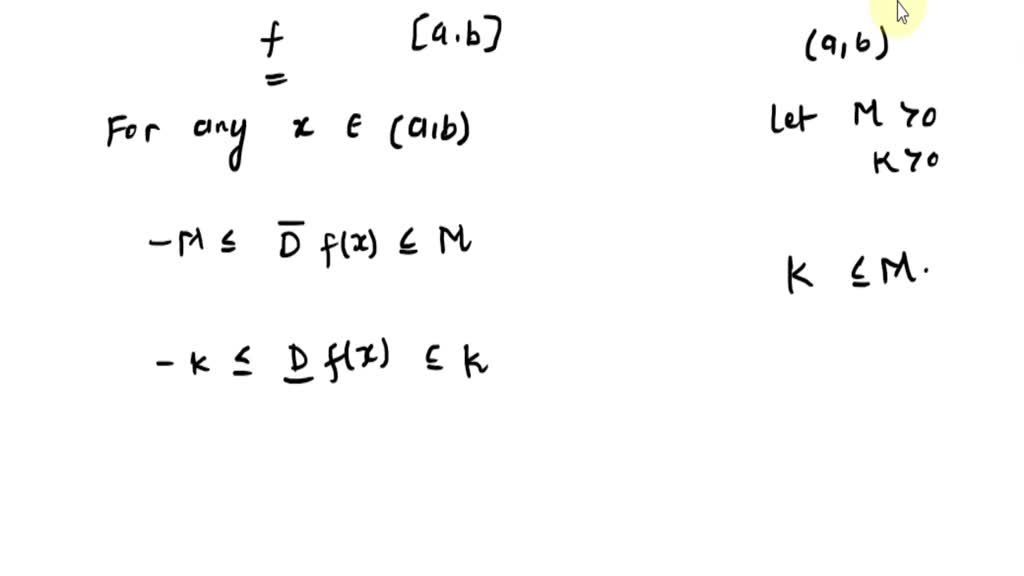 f [a.b] (a,b)
For any x ∈ (a,b) Let M >0
K >0
-M ≤ D̅ f(x) ≤ M
K ≤ M.
-k ≤ D̲ f(x) ≤ k